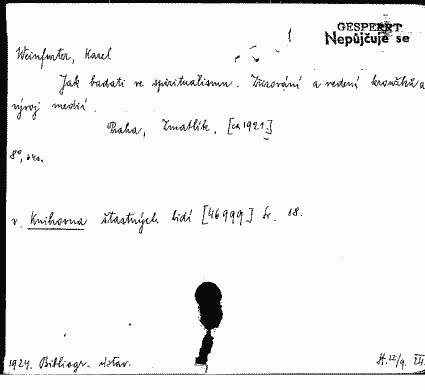 GESPERRT
Nepůjčuje se
Weinfurter, Karel
Jak badati ve spiritualismu. Zřizování a vedení kroužků a
vývoj medií.
Praha, Zmatlík, [ca 1921]
8°, 64 s.
v. Knihovna šťastných lidí [46999] sv. 18.
1924. Bibliogr. ústav.
22/9. III.